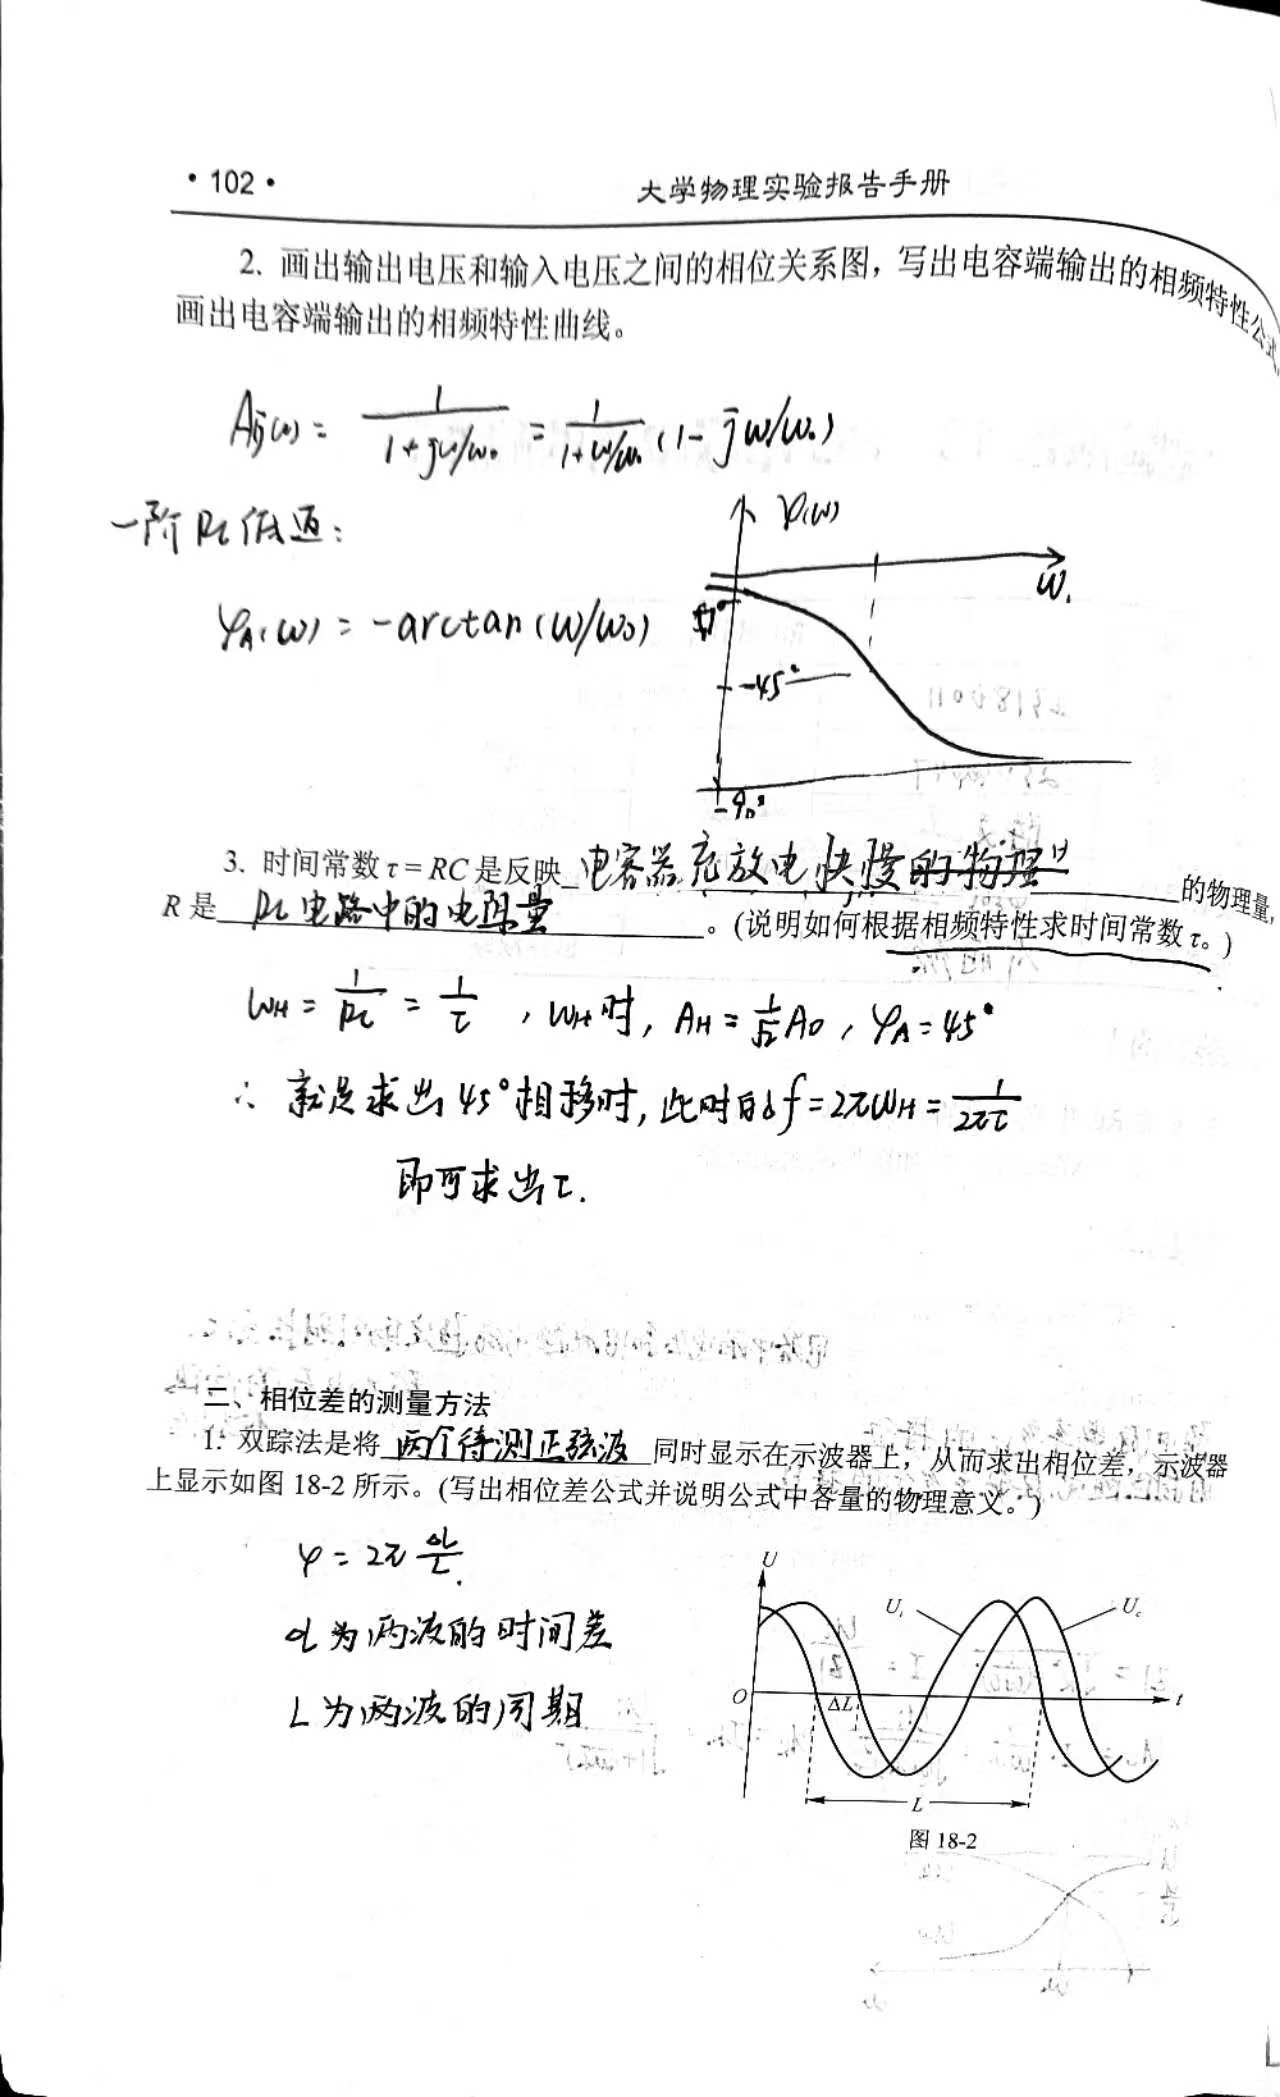 · 102 ·
大学物理实验报告手册
2. 画出输出电压和输入电压之间的相位关系图，写出电容端输出的相频特性公式，
画出电容端输出的相频特性曲线。
A(jω) = 1/(1+jω/ω₀) = 1/(1+ω/ω₀) (1-jω/ω₀)
一阶RC低通：
φA(ω) = -arctan(ω/ω₀)
φ(ω)
ω
-45°
-90°
3. 时间常数 τ = RC 是反映 电容器充放电快慢 的物理量，
R 是 RC电路中的电阻量 。(说明如何根据相频特性求时间常数 τ。)
ωH = 1/RC = 1/τ , ωH时, AH = 1/√2 A0, φA = 45°
∴ 就是求出45°相移时, 此时的f = 2πωH = 1/2πτ
即可求出τ.
二、相位差的测量方法
1. 双踪法是将 两个待测正弦波 同时显示在示波器上，从而求出相位差，示波器
上显示如图 18-2 所示。(写出相位差公式并说明公式中各量的物理意义。)
φ = 2π ΔL/L.
为两波的时间差
L为两波的周期
U
Uᵢ
U꜀
O
ΔL
t
L
图 18-2